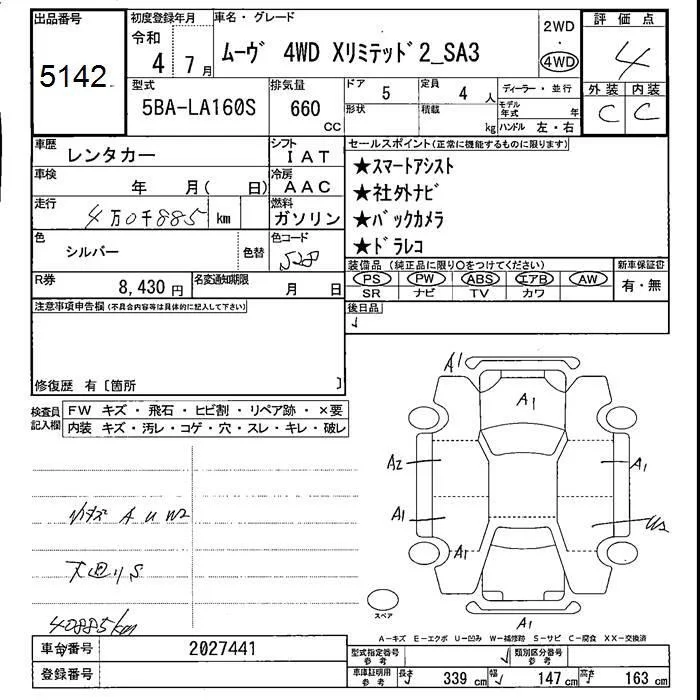 出品番号
5142
初度登録年月
令和
4 7月
車名・グレード
ムーヴ 4WD Xリミテッド2_SA3
2WD
4WD
評価点
4
外装 内装
C C
型式
5BA-LA160S
排気量
660
CC
ドア
5
形状
定員
4 人
積載
kg
ディーラー・並行
モデル年式 年
ハンドル 左・右
車歴
レンタカー
シフト
IAT
車検
年 月( 日)
冷房
AAC
走行
4万0千885 km
燃料
ガソリン
色
シルバー
色替
色コード
S28
R券
8,430 円
名変通知期限
月 日
セールスポイント(正常に機能するものに限ります)
★スマートアシスト
★社外ナビ
★バックカメラ
★ドラレコ
装備品(純正品に限り○をつけてください)
PS PW ABS エアB AW
SR ナビ TV カワ
新車保証書
有・無
後日品
注意事項申告欄(不具合内容等は具体的に記入して下さい)
修復歴 有〔箇所 〕
検査員記入欄
FW キズ・飛石・ヒビ割・リペア跡・×要
内装 キズ・汚レ・コゲ・穴・スレ・キレ・破レ
小キズ A U W2
下回りS
40885km
A1
A1
A2
A1
A1
U2
A1
A1
スペア
A-キズ E-エクボ U-凹み W-補修跡 S-サビ C-腐食 XX-交換済
車台番号
2027441
登録番号
型式指定番号
参考
類別区分番号
参考
車庫証明用
参考
長さ 339 cm 幅 147 cm 高さ 163 cm